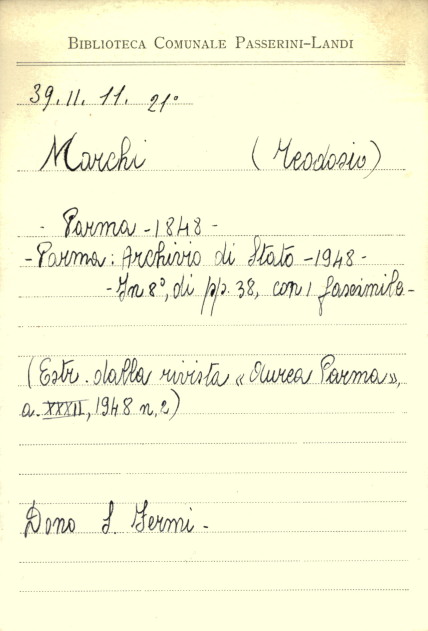 BIBLIOTECA COMUNALE PASSERINI-LANDI
39. II. 11. 21°
Marchi (Teodosio)
- Parma - 1848 -
- Parma: Archivio di Stato - 1948 -
- In 8°, di pp. 38, con 1 facsimile -
(Estr. dalla rivista « Aurea Parma »,
a. XXXII, 1948 n. 2)
Dono S. Fermi -